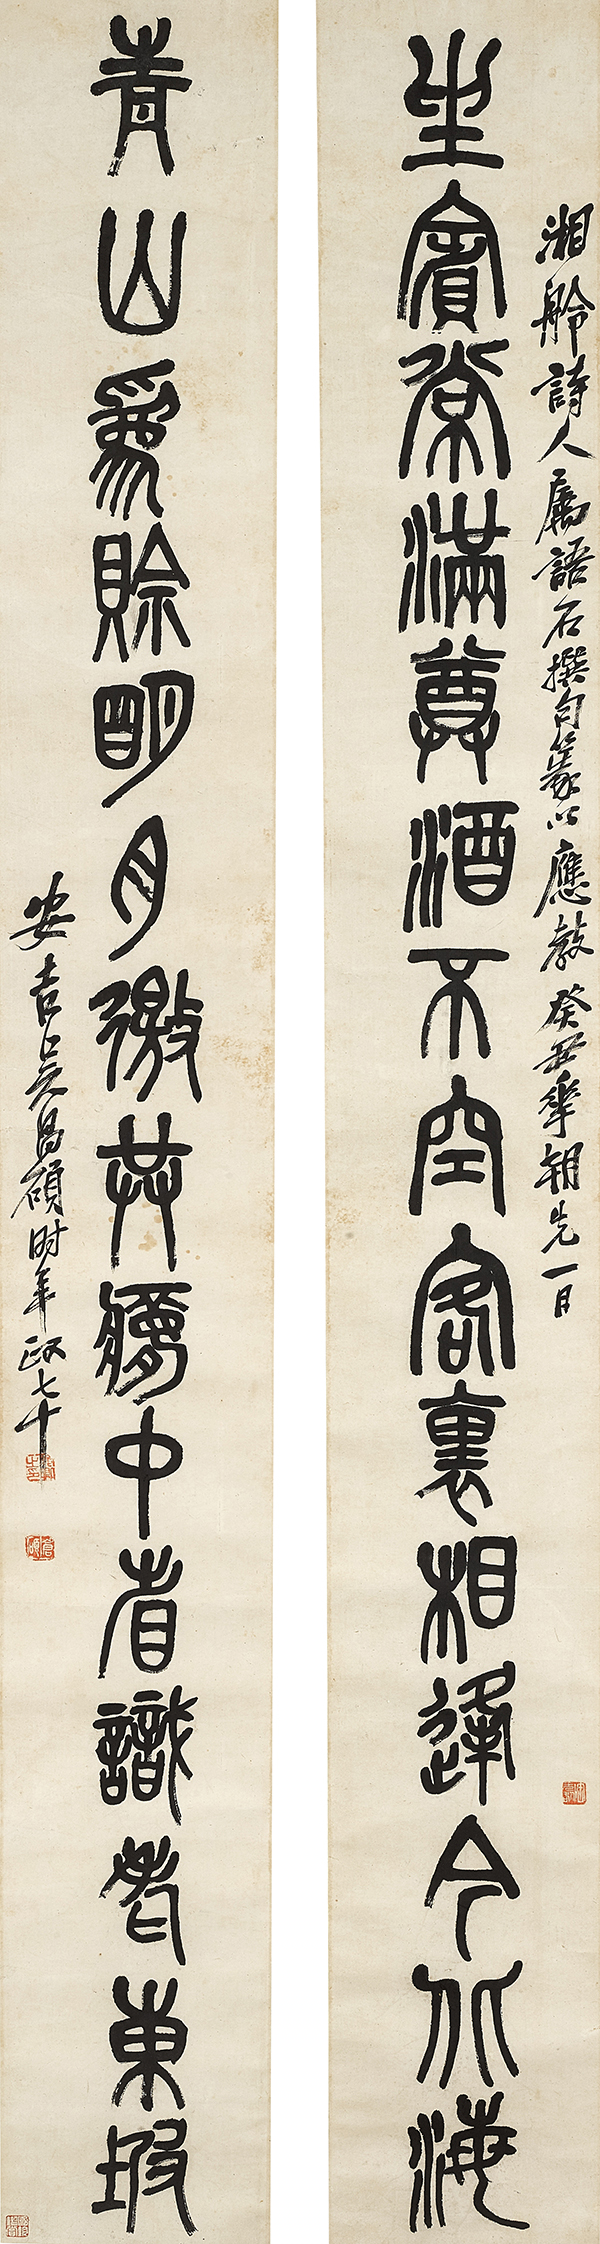 湘舲詩人屬語石撰句篆以應教癸丑華朝先一日
坐賓常滿尊酒不空客裏相逢今北海
青山為賒明月徼共夢中省識老東坡
安吉吳昌碩時年政七十
倉碩